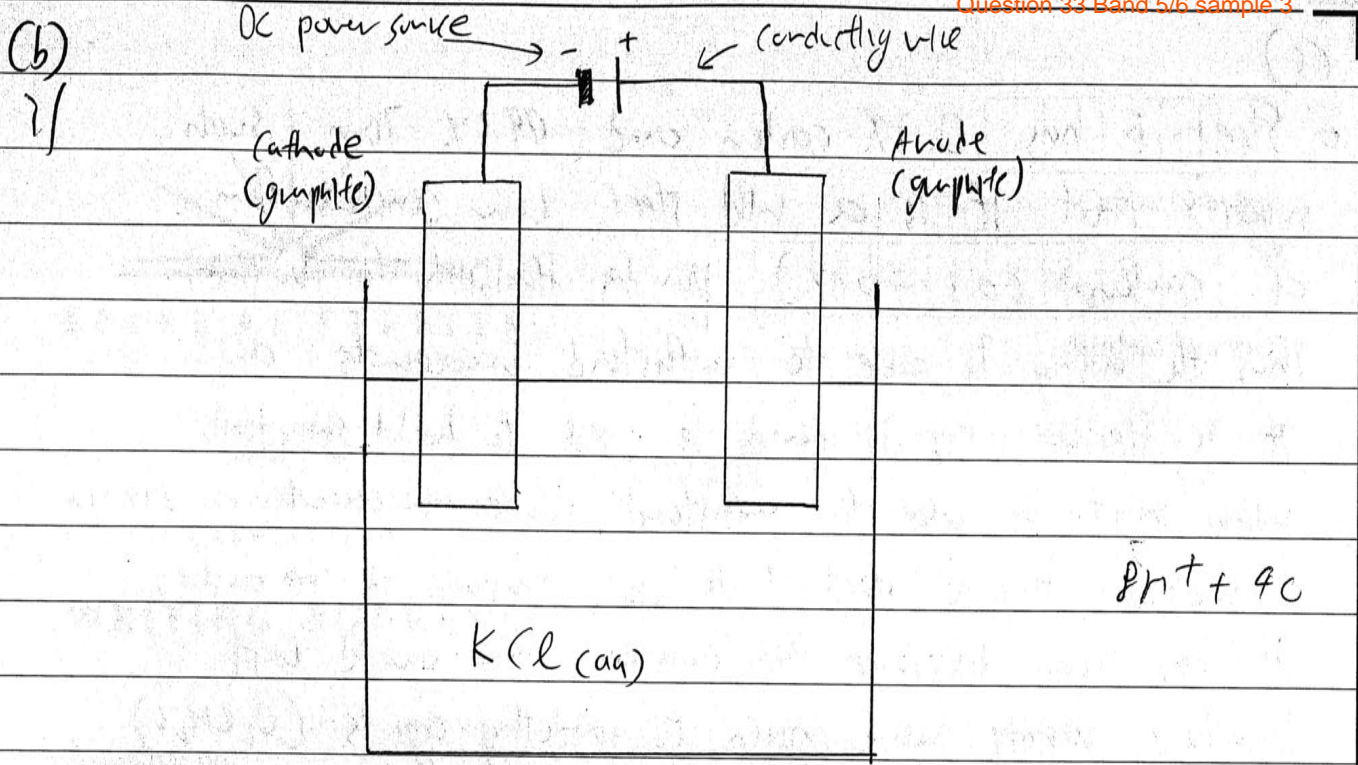 Question 33 Band 5/6 sample 3
(b)
DC power source
- +
conducting wire
i/
Cathode
(graphite)
Anode
(graphite)
8H+ + 4C
KCl (aq)